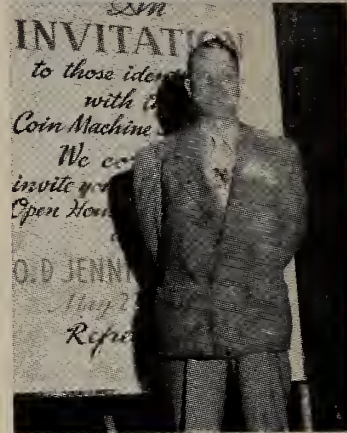 An
INVITATION
to those iden
with t
Coin Machine
We co
invite yo
Open Hou
O.D JENN
May 2
Refre